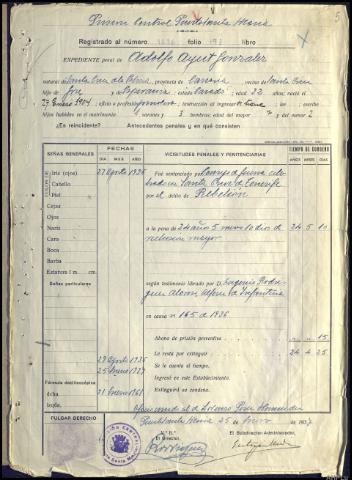 Prisión Central Puerto Santa María
Registrado al número folio libro
EXPEDIENTE penal de Adolfo Ayut González
natural de Santa Cruz de provincia de Canaria vecino de Santa Cruz
hijo de José y Esperanza, estado Casado, edad 32 años; nació el
29 Enero 1904, oficio o profesión Jornalero, instrucción al ingresar
hijos habidos en el matrimonio varones y 3 hembras; edad del mayor 7 y del menor 2
¿Es reincidente? Antecedentes penales y en qué consisten
SEÑAS GENERALES
FECHAS
DIA MES AÑO
VICISITUDES PENALES Y PENITENCIARIAS
TIEMPO DE CONDENA
AÑOS MESES DIAS
Iris (ojos)
Cabello
Piel
Cejas
Ojos
Nariz
Cara
Boca
Barba
Estatura 1 m. cm.
Señas particulares
27 Agosto 1936
Fué sentenciado en Consejo de guerra cele
brado en Santa Cruz de Tenerife
por el delito de Rebelión
a la pena de 24 años 5 meses 10 días de
reclusión mayor
24 5 10
según testimonio librado por D. Eugenio Rodrí
guez Alferez de Infantería
en causa nº 165 de 1936
Abono de prisión preventiva
15
Le resta por extinguir
24 4 25
29 Agosto 1936
Se le cuenta el tiempo.
25 Enero 1937
Ingresó en este Establecimiento.
Fórmula dactiloscópica
21 Enero 1961
Extinguirá su condena.
PULGAR DERECHO
Puerto Santa María 25 de Enero de 1937
V.º B.º
El Director,
El Subdirector-Administrador,